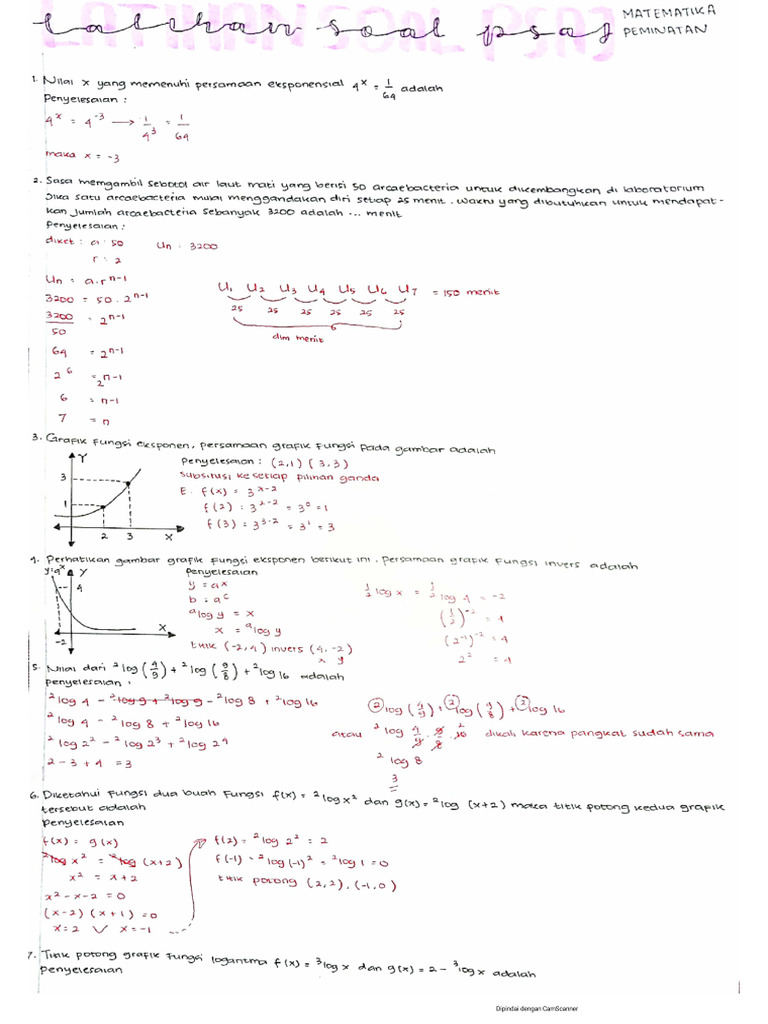 LATIHAN SOAL PSAJ
latihan soal psaj
MATEMATIKA
PEMINATAN
1. Nilai x yang memenuhi persamaan eksponensial 4^x = 1/64 adalah
Penyelesaian :
4^x = 4^-3 → 1/4^3 = 1/64
maka x = -3
2. Sasa mengambil sebotol air laut mati yang berisi 50 arcaebacteria untuk dikembangkan di laboratorium
Jika satu arcaebacteria mulai menggandakan diri setiap 25 menit. Waktu yang dibutuhkan untuk mendapat-
kan jumlah arcaebacteria sebanyak 3200 adalah ... menit
Penyelesaian :
diket : a : 50 Un : 3200
r : 2
Un = a.r^n-1
3200 = 50 . 2^n-1
3200/50 = 2^n-1
64 = 2^n-1
2^6 = 2^n-1
6 = n-1
7 = n
U1 U2 U3 U4 U5 U6 U7 = 150 menit
25 25 25 25 25 25
6
dlm menit
3. Grafik fungsi eksponen, persamaan grafik fungsi pada gambar adalah
Y
3
1
2 3 X
Penyelesaian : (2,1) (3,3)
Substitusi ke setiap pilihan ganda
E. f(x) = 3^x-2
f(2) = 3^2-2 = 3^0 = 1
f(3) = 3^3-2 = 3^1 = 3
4. Perhatikan gambar grafik fungsi eksponen berikut ini. Persamaan grafik fungsi invers adalah
y=a^x Y
4
X
-2
Penyelesaian
y = a^x
b = a^c
^a log y = x
x = ^a log y
titik (-2,4) invers (4,-2)
x y
^1/2 log x = ^1/2 log 4 = -2
(1/2)^-2 = 4
(2^-1)^-2 = 4
2^2 = 4
5. Nilai dari ^2log(4/9) + ^2log(9/8) + ^2log 16 adalah
Penyelesaian :
^2log 4 - ^2log 9 + ^2log 9 - ^2log 8 + ^2log 16
^2log 4 - ^2log 8 + ^2log 16
^2log 2^2 - ^2log 2^3 + ^2log 2^4
2 - 3 + 4 = 3
^2log(4/9) + ^2log(9/8) + ^2log 16
atau ^2log 4/9 . 9/8 . 16 2 dikali karena pangkat sudah sama
^2log 8
3
6. Diketahui fungsi dua buah fungsi f(x) = ^2log x^2 dan g(x) = ^2log (x+2) maka titik potong kedua grafik
tersebut adalah
Penyelesaian
f(x) = g(x)
^2log x^2 = ^2log (x+2)
x^2 = x+2
x^2 - x - 2 = 0
(x-2) (x+1) = 0
x = 2 V x = -1
f(2) = ^2log 2^2 = 2
f(-1) = ^2log (-1)^2 = ^2log 1 = 0
titik potong (2,2), (-1,0)
7. Titik potong grafik fungsi logaritma f(x) = ^3log x dan g(x) = 2 - ^3log x adalah
Penyelesaian
Dipindai dengan CamScanner